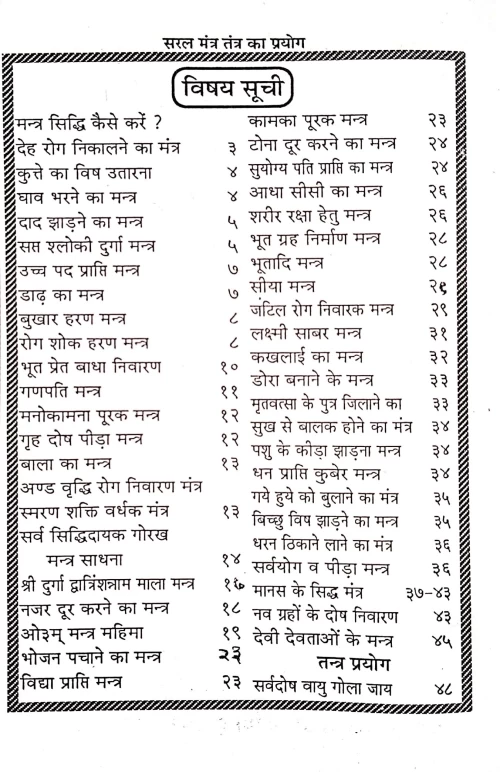 सरल मंत्र तंत्र का प्रयोग
विषय सूची
मन्त्र सिद्धि कैसे करें ?
देह रोग निकालने का मंत्र ३
कुत्ते का विष उतारना ४
घाव भरने का मन्त्र ४
दाद झाड़ने का मन्त्र ५
सप्त श्लोकी दुर्गा मन्त्र ५
उच्च पद प्राप्ति मन्त्र ७
डाढ़ का मन्त्र ७
बुखार हरण मन्त्र ८
रोग शोक हरण मन्त्र ८
भूत प्रेत बाधा निवारण १०
गणपति मन्त्र ११
मनोकामना पूरक मन्त्र १२
गृह दोष पीड़ा मन्त्र १२
बाला का मन्त्र १३
अण्ड वृद्धि रोग निवारण मंत्र
स्मरण शक्ति वर्धक मंत्र १३
सर्व सिद्धिदायक गोरख
मन्त्र साधना १४
श्री दुर्गा द्वात्रिंशन्नाम माला मन्त्र १७
नजर दूर करने का मन्त्र १८
ओ३म् मन्त्र महिमा १९
भोजन पचाने का मन्त्र २३
विद्या प्राप्ति मन्त्र २३
कामका पूरक मन्त्र २३
टोना दूर करने का मन्त्र २४
सुयोग्य पति प्राप्ति का मन्त्र २४
आधा सीसी का मन्त्र २६
शरीर रक्षा हेतु मन्त्र २६
भूत ग्रह निर्माण मन्त्र २८
भूतादि मन्त्र २८
सीया मन्त्र २९
जटिल रोग निवारक मन्त्र २९
लक्ष्मी साबर मन्त्र ३१
कखलाई का मन्त्र ३२
डोरा बनाने के मन्त्र ३३
मृतवत्सा के पुत्र जिलाने का ३३
सुख से बालक होने का मंत्र ३४
पशु के कीड़ा झाड़ना मन्त्र ३४
धन प्राप्ति कुबेर मन्त्र ३४
गये हुये को बुलाने का मंत्र ३५
बिच्छु विष झाड़ने का मन्त्र ३५
धरन ठिकाने लाने का मंत्र ३६
सर्वयोग व पीड़ा मन्त्र ३६
मानस के सिद्ध मंत्र ३७-४३
नव ग्रहों के दोष निवारण ४३
देवी देवताओं के मन्त्र ४५
तन्त्र प्रयोग
सर्वदोष वायु गोला जाय ४८